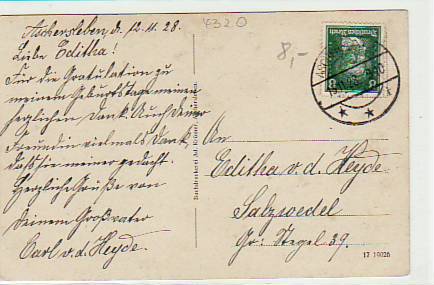 Aschersleben d. 12.11.28.
Liebe Editha!
Für die Gratulation zu
meinem Geburtstage meinen
herzlichen Dank. Auch deiner
Freundin vielmals Dank,
daß sie meiner gedacht.
Herzliche Grüße von
deinem Großvater
Carl v. d. Heyde.
4320
8,-
Deutsches Reich
8 8
An
Editha v. d. Heyde
Salzwedel
Gr: Stegel 39.
17 19026